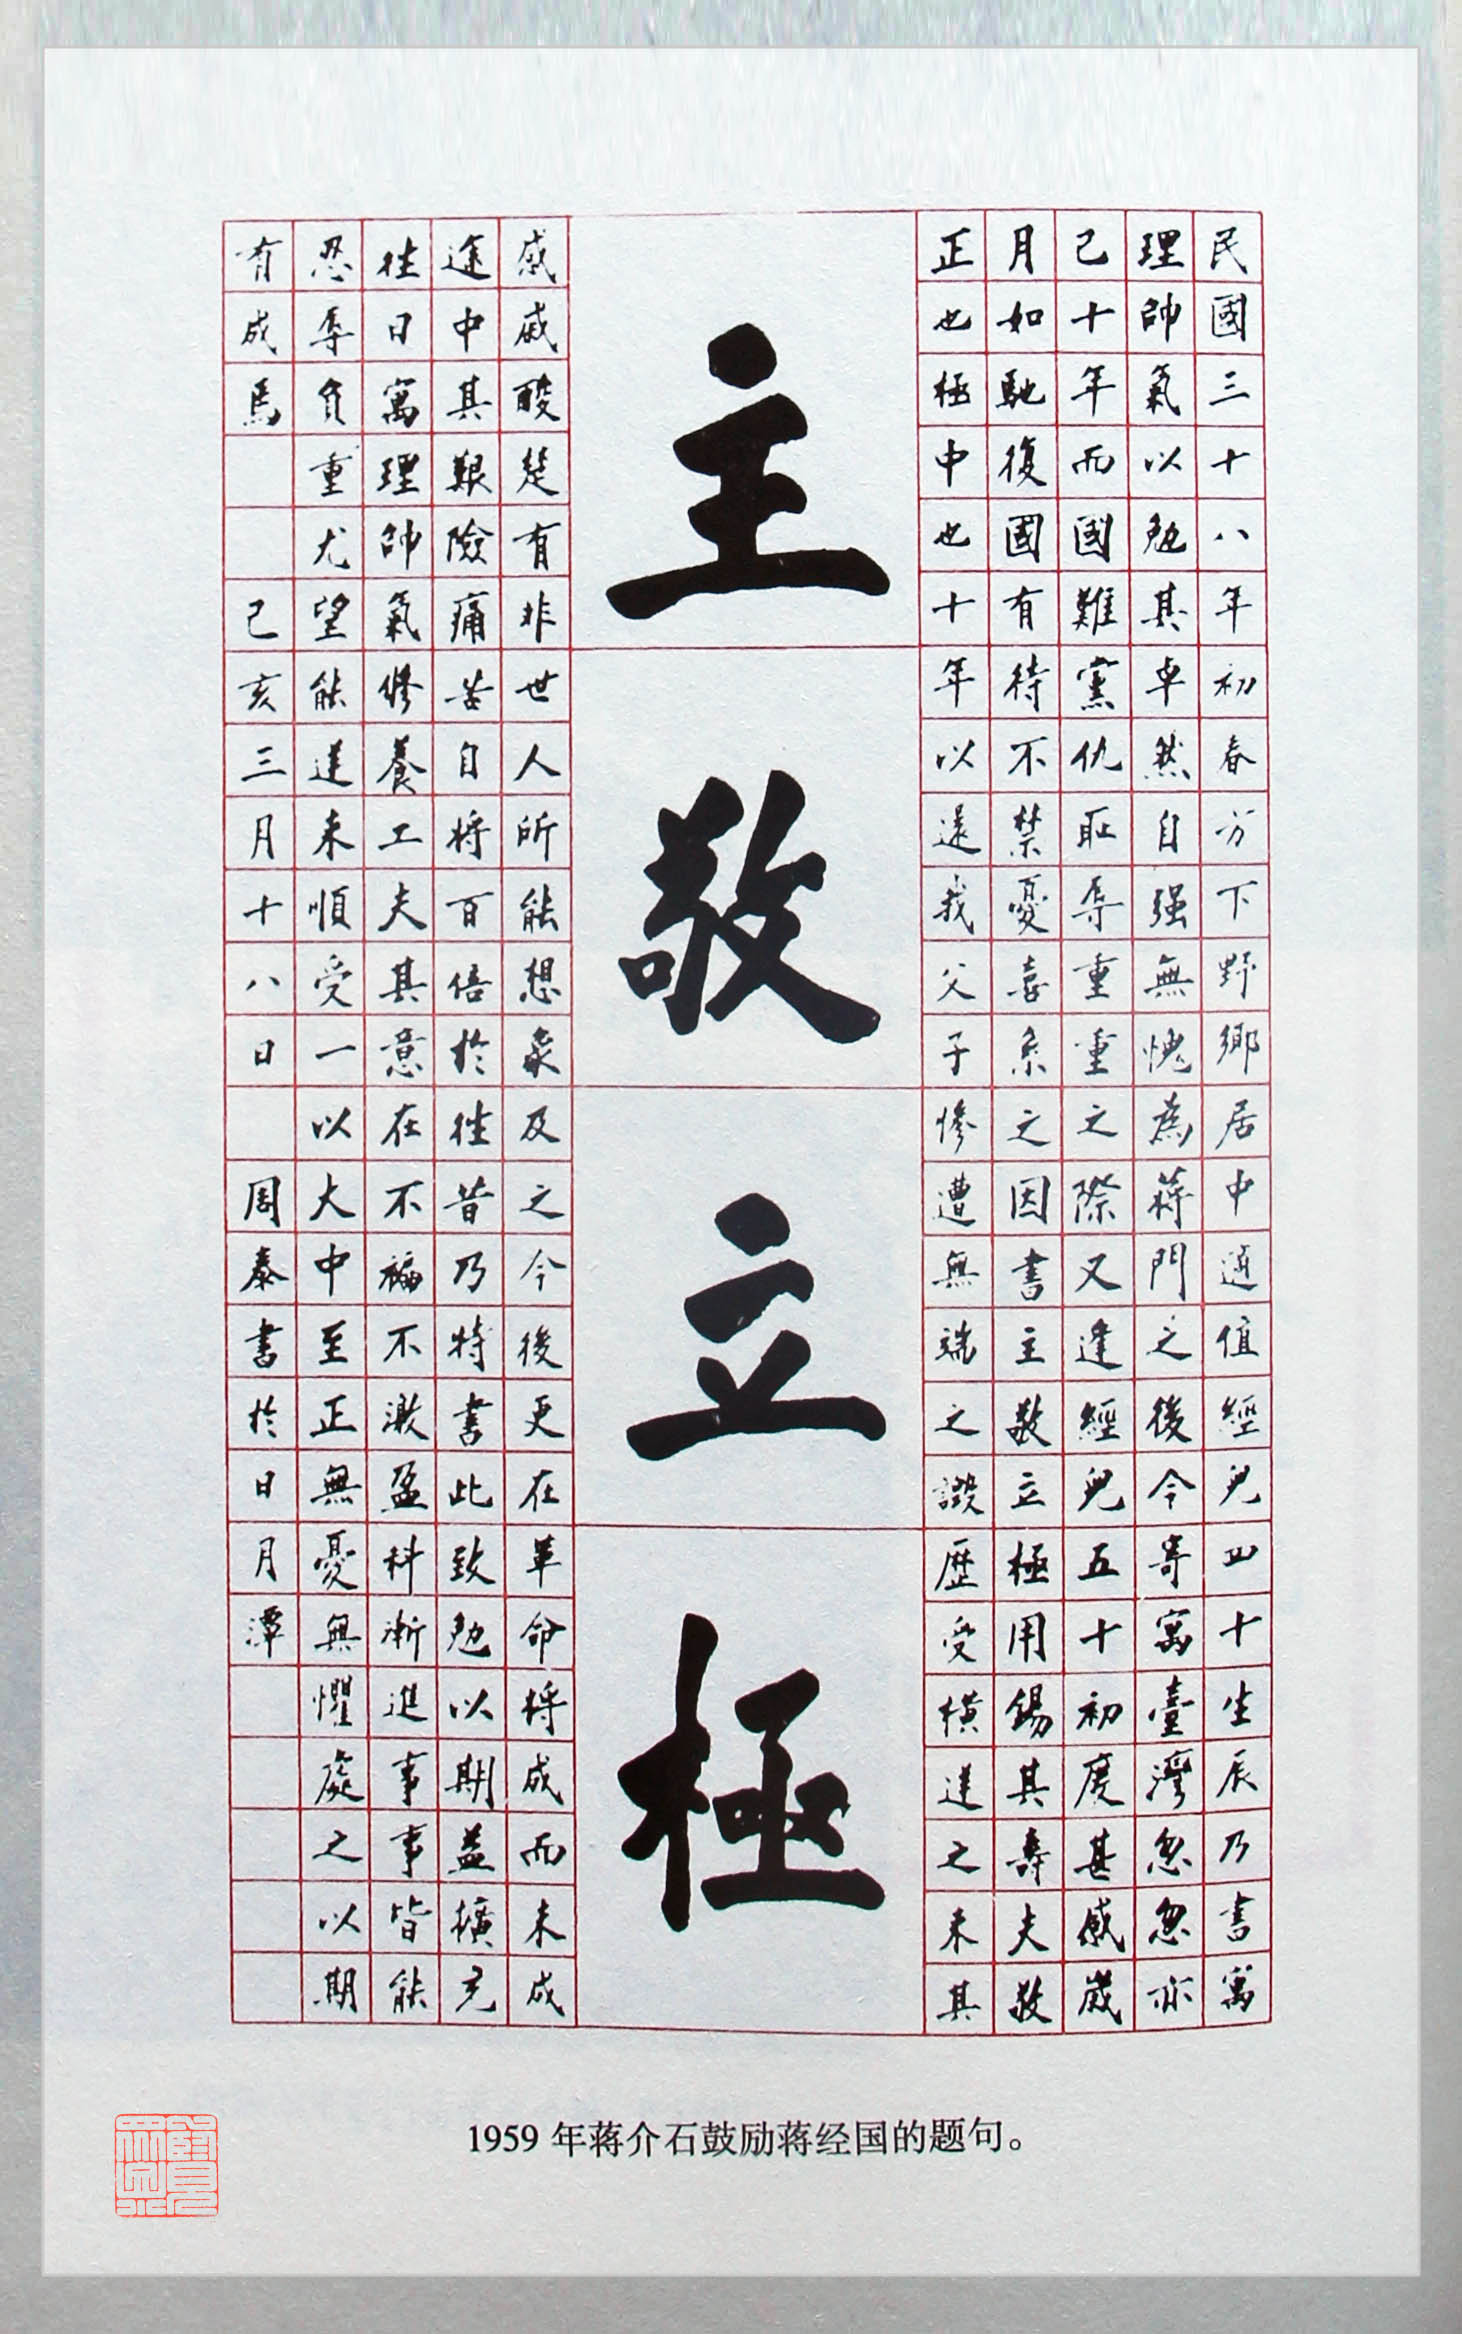 民國三十八年初春方下野鄉居中適值經兒四十生辰乃書寓
理帥氣以勉其卓然自强無愧為蔣門之後今寄寓臺灣忽忽亦
已十年而國難黨仇恥辱重重之際又逢經兒五十初度甚感歲
月如馳復國有待不禁憂喜系之因書主敬立極用錫其壽夫敬
正也極中也十年以還我父子慘遭無端之譭歷受橫逆之來其
主敬立極
感戚酸楚有非世人所能想象及之今後更在革命將成而未成
途中其艱險痛苦自將百倍於往昔乃特書此致勉以期益擴充
往日寓理帥氣修養工夫其意在不褊不激盈科漸進事事皆能
忍辱負重尤望能逆來順受一以大中至正無憂無懼處之以期
有成焉 己亥三月十八日 周泰書於日月潭
1959 年蒋介石鼓励蒋经国的题句。